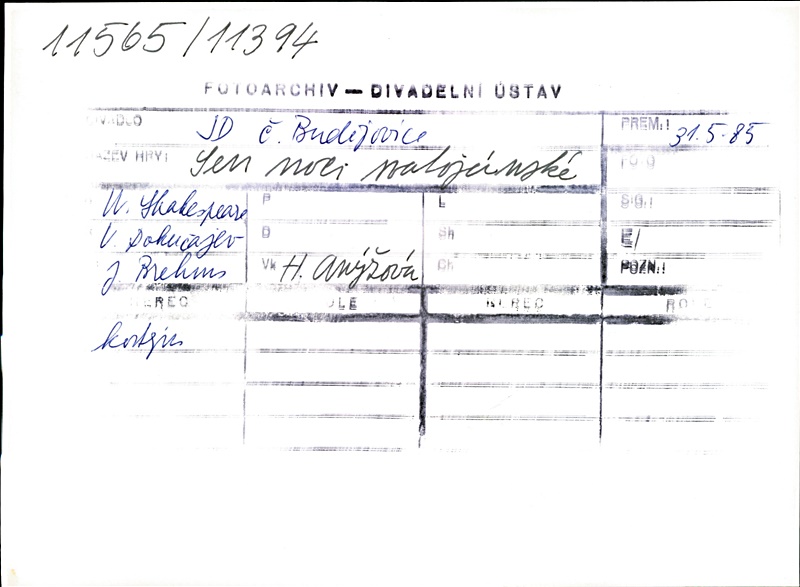 11565/11394
FOTOARCHIV — DIVADELNÍ ÚSTAV
IVADLO JD Č. Budějovice PREM.: 31.5.85
ÁZEV HRY: Sen noci svatojánské FOTO
W. Shakespeare P L SIG.:
V. Dokučajev D Sh E/
J. Brehms Vk H. Anýžová Ch POZN.:
HEREC ROLE HEREC ROLE
kostým